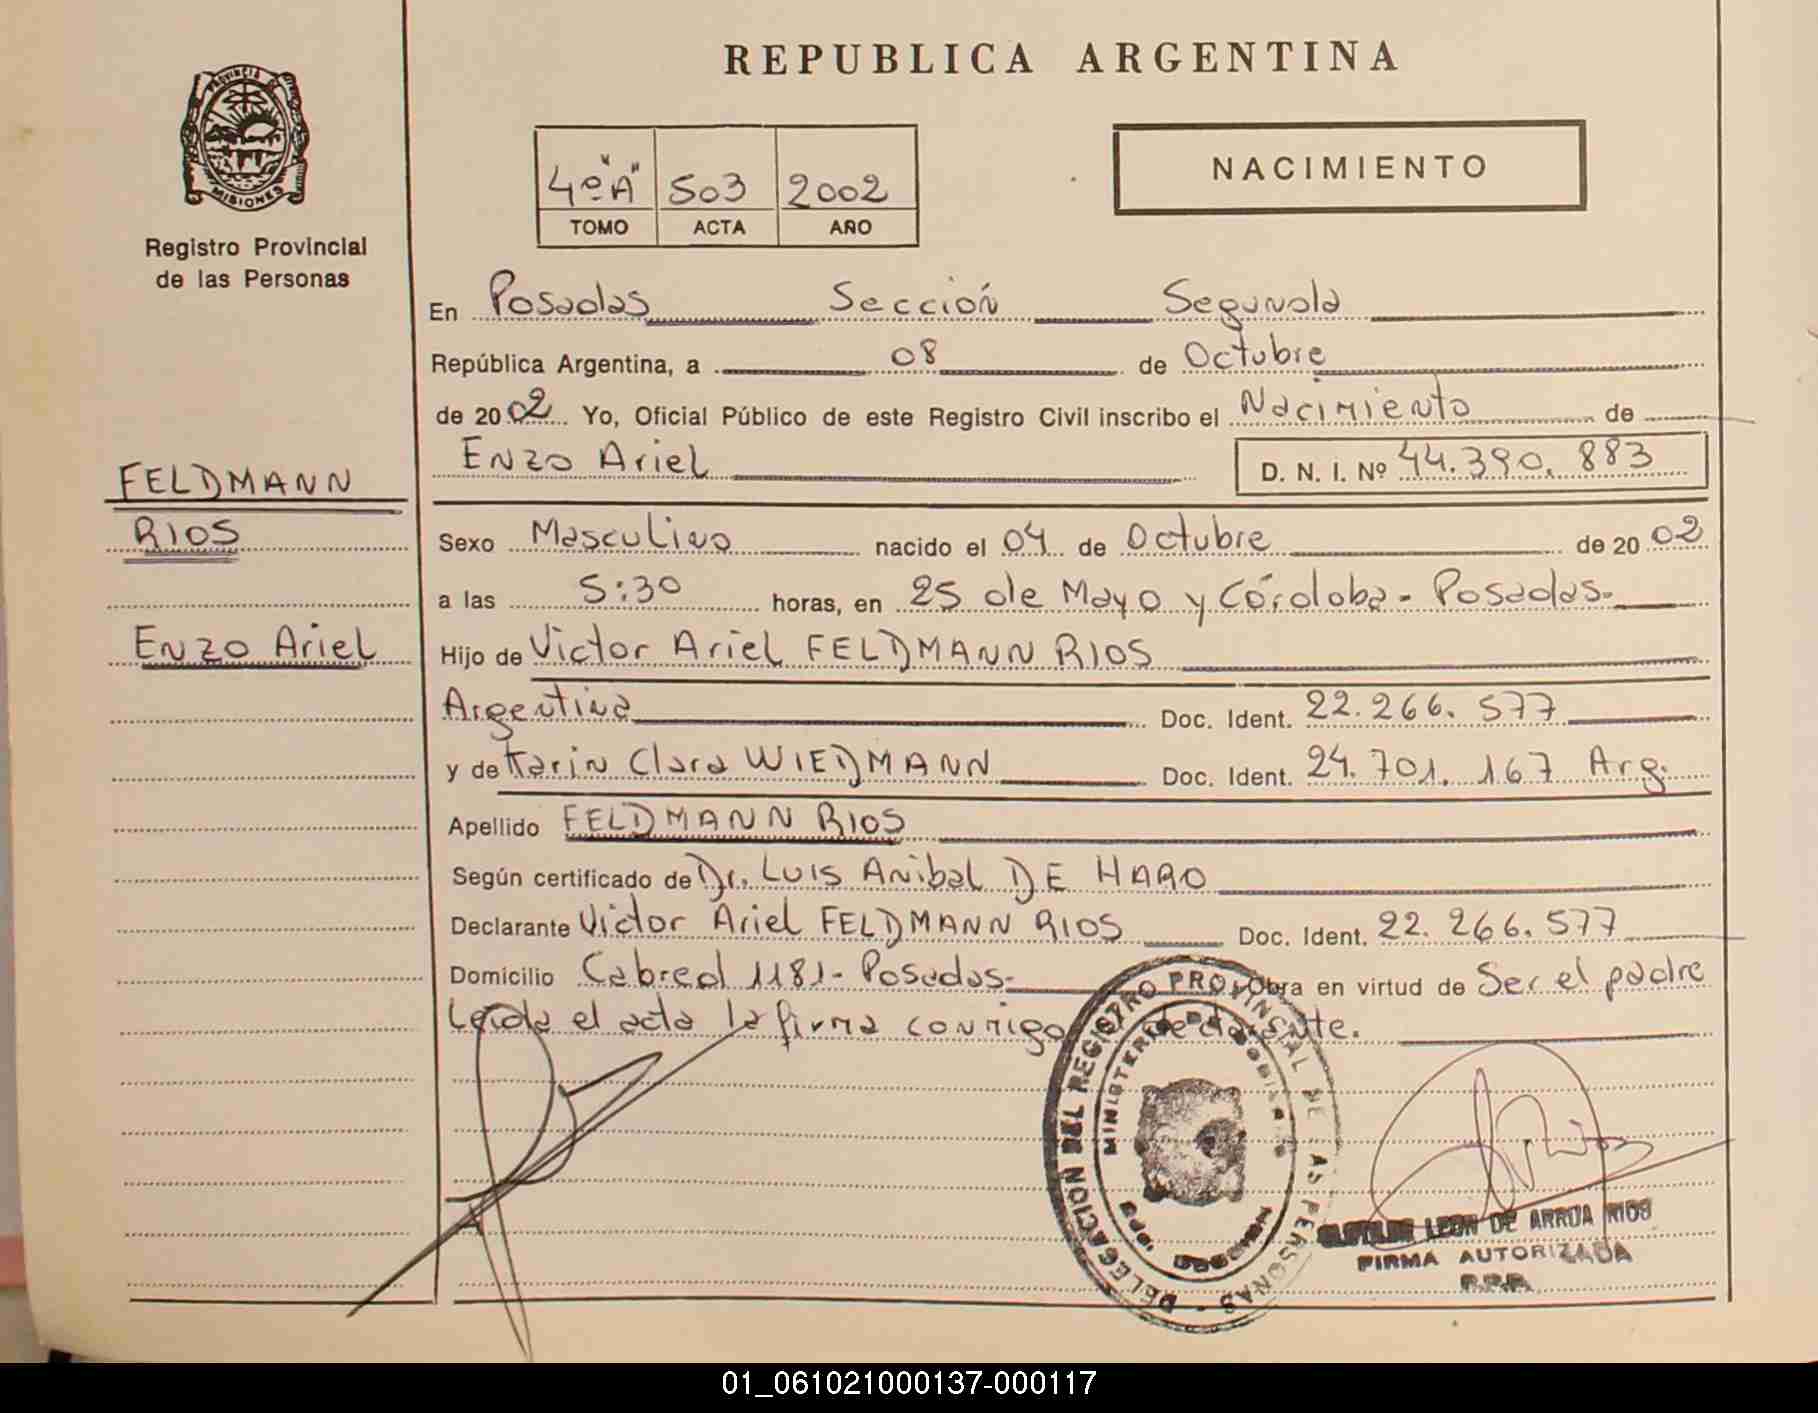 REPUBLICA ARGENTINA
PROVINCIA DE
MISIONES
Registro Provincial
de las Personas
4º "A" 503 2002
TOMO ACTA AÑO
NACIMIENTO
En Posadas Sección Segunda
República Argentina, a 08 de Octubre
de 2002 Yo, Oficial Público de este Registro Civil inscribo el Nacimiento de
Enzo Ariel D. N. I. Nº 44.390.883
FELDMANN
RIOS
Enzo Ariel
Sexo Masculino nacido el 04 de Octubre de 2002
a las 5:30 horas, en 25 de Mayo y Córdoba - Posadas-
Hijo de Victor Ariel FELDMANN RIOS
Argentina Doc. Ident. 22.266.577
y de Karin Clara WIEDMANN Doc. Ident. 24.701.167 Arg.
Apellido FELDMANN RIOS
Según certificado de Dr. Luis Anibal DE HARO
Declarante Victor Ariel FELDMANN RIOS Doc. Ident. 22.266.577
Domicilio Cabred 1181- Posadas- Obra en virtud de Ser el padre
Leída el acta la firma conmigo el declarante.
DELEGACION DEL REGISTRO PROVINCIAL DE LAS PERSONAS -
MINISTERIO DE GOBIERNO
MISIONES
LEON DE ARRUA RIOS
FIRMA AUTORIZADA
R.P.P.
01_061021000137-000117